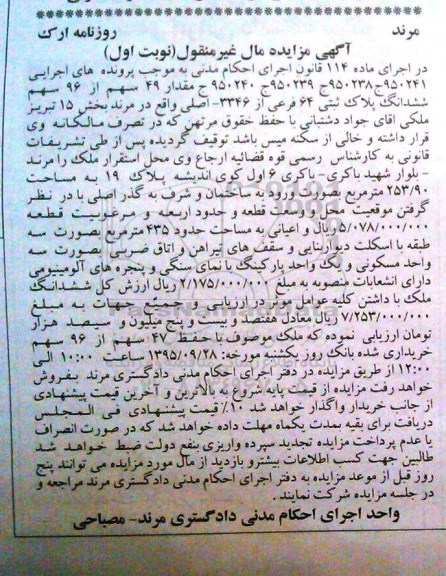 مرند روزنامه ارک
آگهی مزایده مال غیرمنقول(نوبت اول)
در اجرای ماده ۱۱۴ قانون اجرای احکام مدنی به موجب پرونده های اجرایی
۹۵۰۲۴۱ج۹۵۰۲۳۸ج ۹۵۰۲۳۹ج ۹۵۰۲۴۰ ج مقدار ۴۹ سهم از ۹۶ سهم
ششدانگ پلاک ثبتی ۶۴ فرعی از ۳۳۴۶- اصلی واقع در مرند بخش ۱۵ تبریز
ملکی اقای جواد دشتبانی با حفظ حقوق مرتهن که در تصرف مالکانه وی
قرار داشته و خالی از سکنه میس باشد توقیف گردیده پس از طی تشریفات
قانونی به کارشناس رسمی قوه قضائیه ارجاع وی محل استقرار ملک را مرند
- بلوار شهید باکری- باکری ۶ اول کوی اندیشه پلاک ۱۹ به مساحت
۲۵۳/۹۰ مترمربع مسیر ورود به ساختمان و شرف به گذر اصلی با در نظر
گرفتن موقعیت محل و وسعت قطعه و حدود اربعه و مرغوبیت قطعه
۵/۰۷۸/۰۰۰/۰۰۰ریال و اعیانی به مساحت حدود ۴۳۵ مترمربع بصورت سه
طبقه با اسکلت دیواربنایی و سقف های تیراهن و اتاق ضربی بصورت سه
واحد مسکونی و یک واحد پارکینگ با نمای سنگی و پنجره های آلومینومی
دارای انشعابات منصوبه به مبلغ ۲/۱۷۵/۰۰۰/۰۰۰ ریال ارزش کل ششدانگ
ملک با داشتن کلیه عوامل موثر در ارزیابی و جمیع جهات به مبلغ
۷/۲۵۳/۰۰۰/۰۰۰ ریال معادل هفتصد و بیست و پنج میلیون و سیصد هزار
تومان ارزیابی نموده که ملک موصوف با حفظ ۴۷ سهم از ۹۶ سهم
خریداری شده بانک روز یکشنبه مورخه: ۱۳۹۵/۰۹/۲۸ ساعت ۱۰:۰۰ الی
۱۲:۰۰ از طریق مزایده در دفتر اجرای احکام مدنی دادگستری مرند بفروش
خواهد رفت مزایده از قیمت پایه شروع به بالاترین و آخرین قیمت پیشنهادی
از جانب خریدار واگذار خواهد شد ۱۰٪ قیمت پیشنهادی فی المجلس
دریافت برای بقیه بمدت یکماه مهلت داده خواهد شد که در صورت انصراف
یا عدم پرداخت مزایده تجدید سپرده واریزی بنفع دولت ضبط خواهد شد
طالبین جهت کسب اطلاعات بیشترو بازدید از مال مورد مزایده می توانند پنج
روز قبل از موعد مزایده به دفتر اجرای احکام مدنی دادگستری مرند مراجعه و
در جلسه مزایده شرکت نمایند .
واحد اجرای احکام مدنی دادگستری مرند- مصباحی